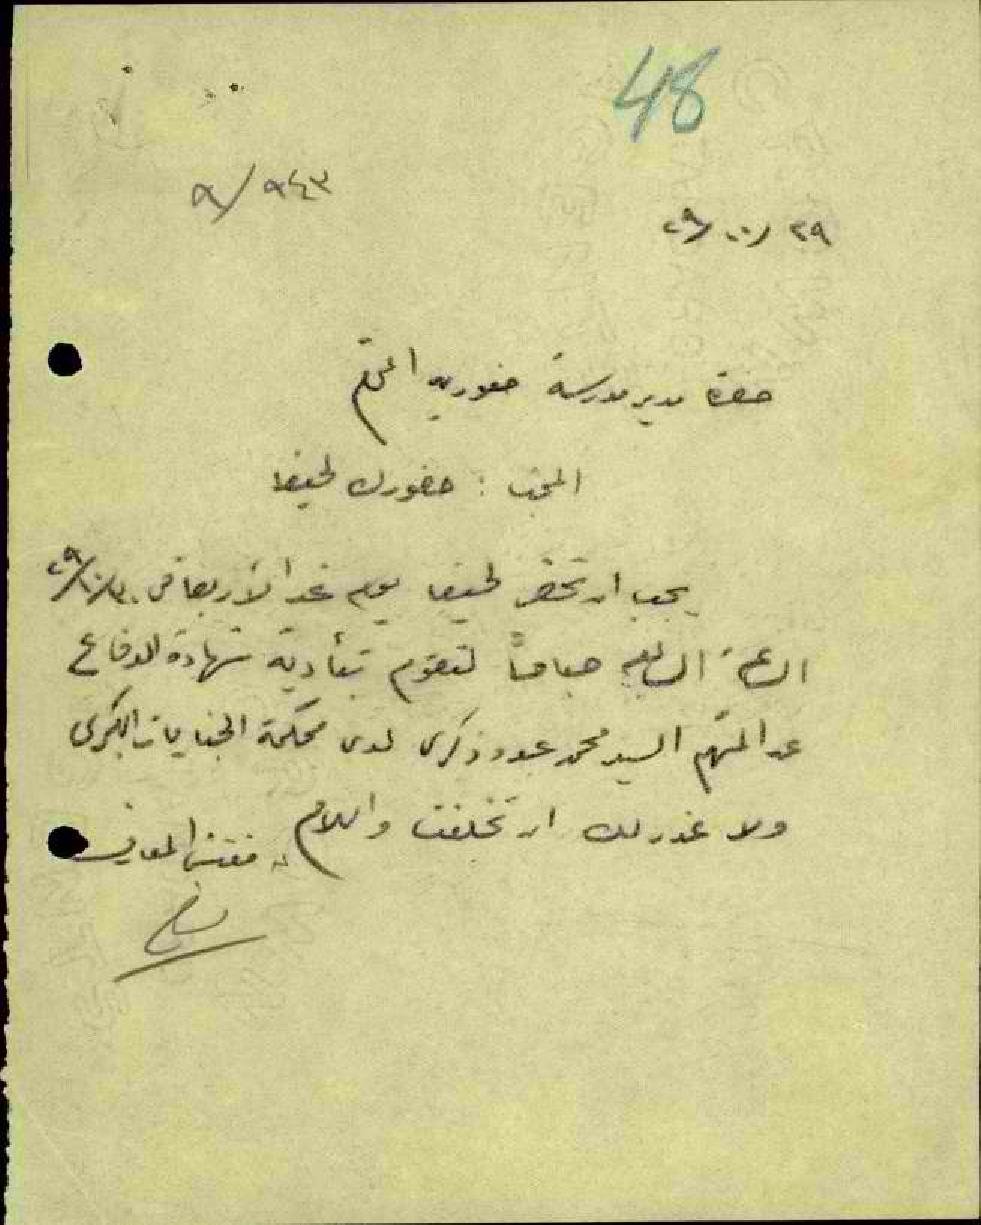 48
٩/٩٤٣
٢٩/١٠/٢٩
حضرة مدير مدرسة صفوريه المحترم
المبحث : حضورك لحيفا
يجب ان تحضر لحيفا يوم غد الأربعاء في ٢٩/١٠/٣٠
الساعة السابعة صباحاً لتقوم بتأدية شهادة الدفاع
عن المتهم السيد محمد عبدو زكرى لدى محكمة الجنايات الكبرى
ولا عذر لك ان تخلفت والسلام
مفتش المعارف